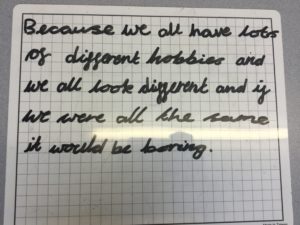 Because we all have lots
of different hobbies and
we all look different and if
we were all the same
it would be boring.